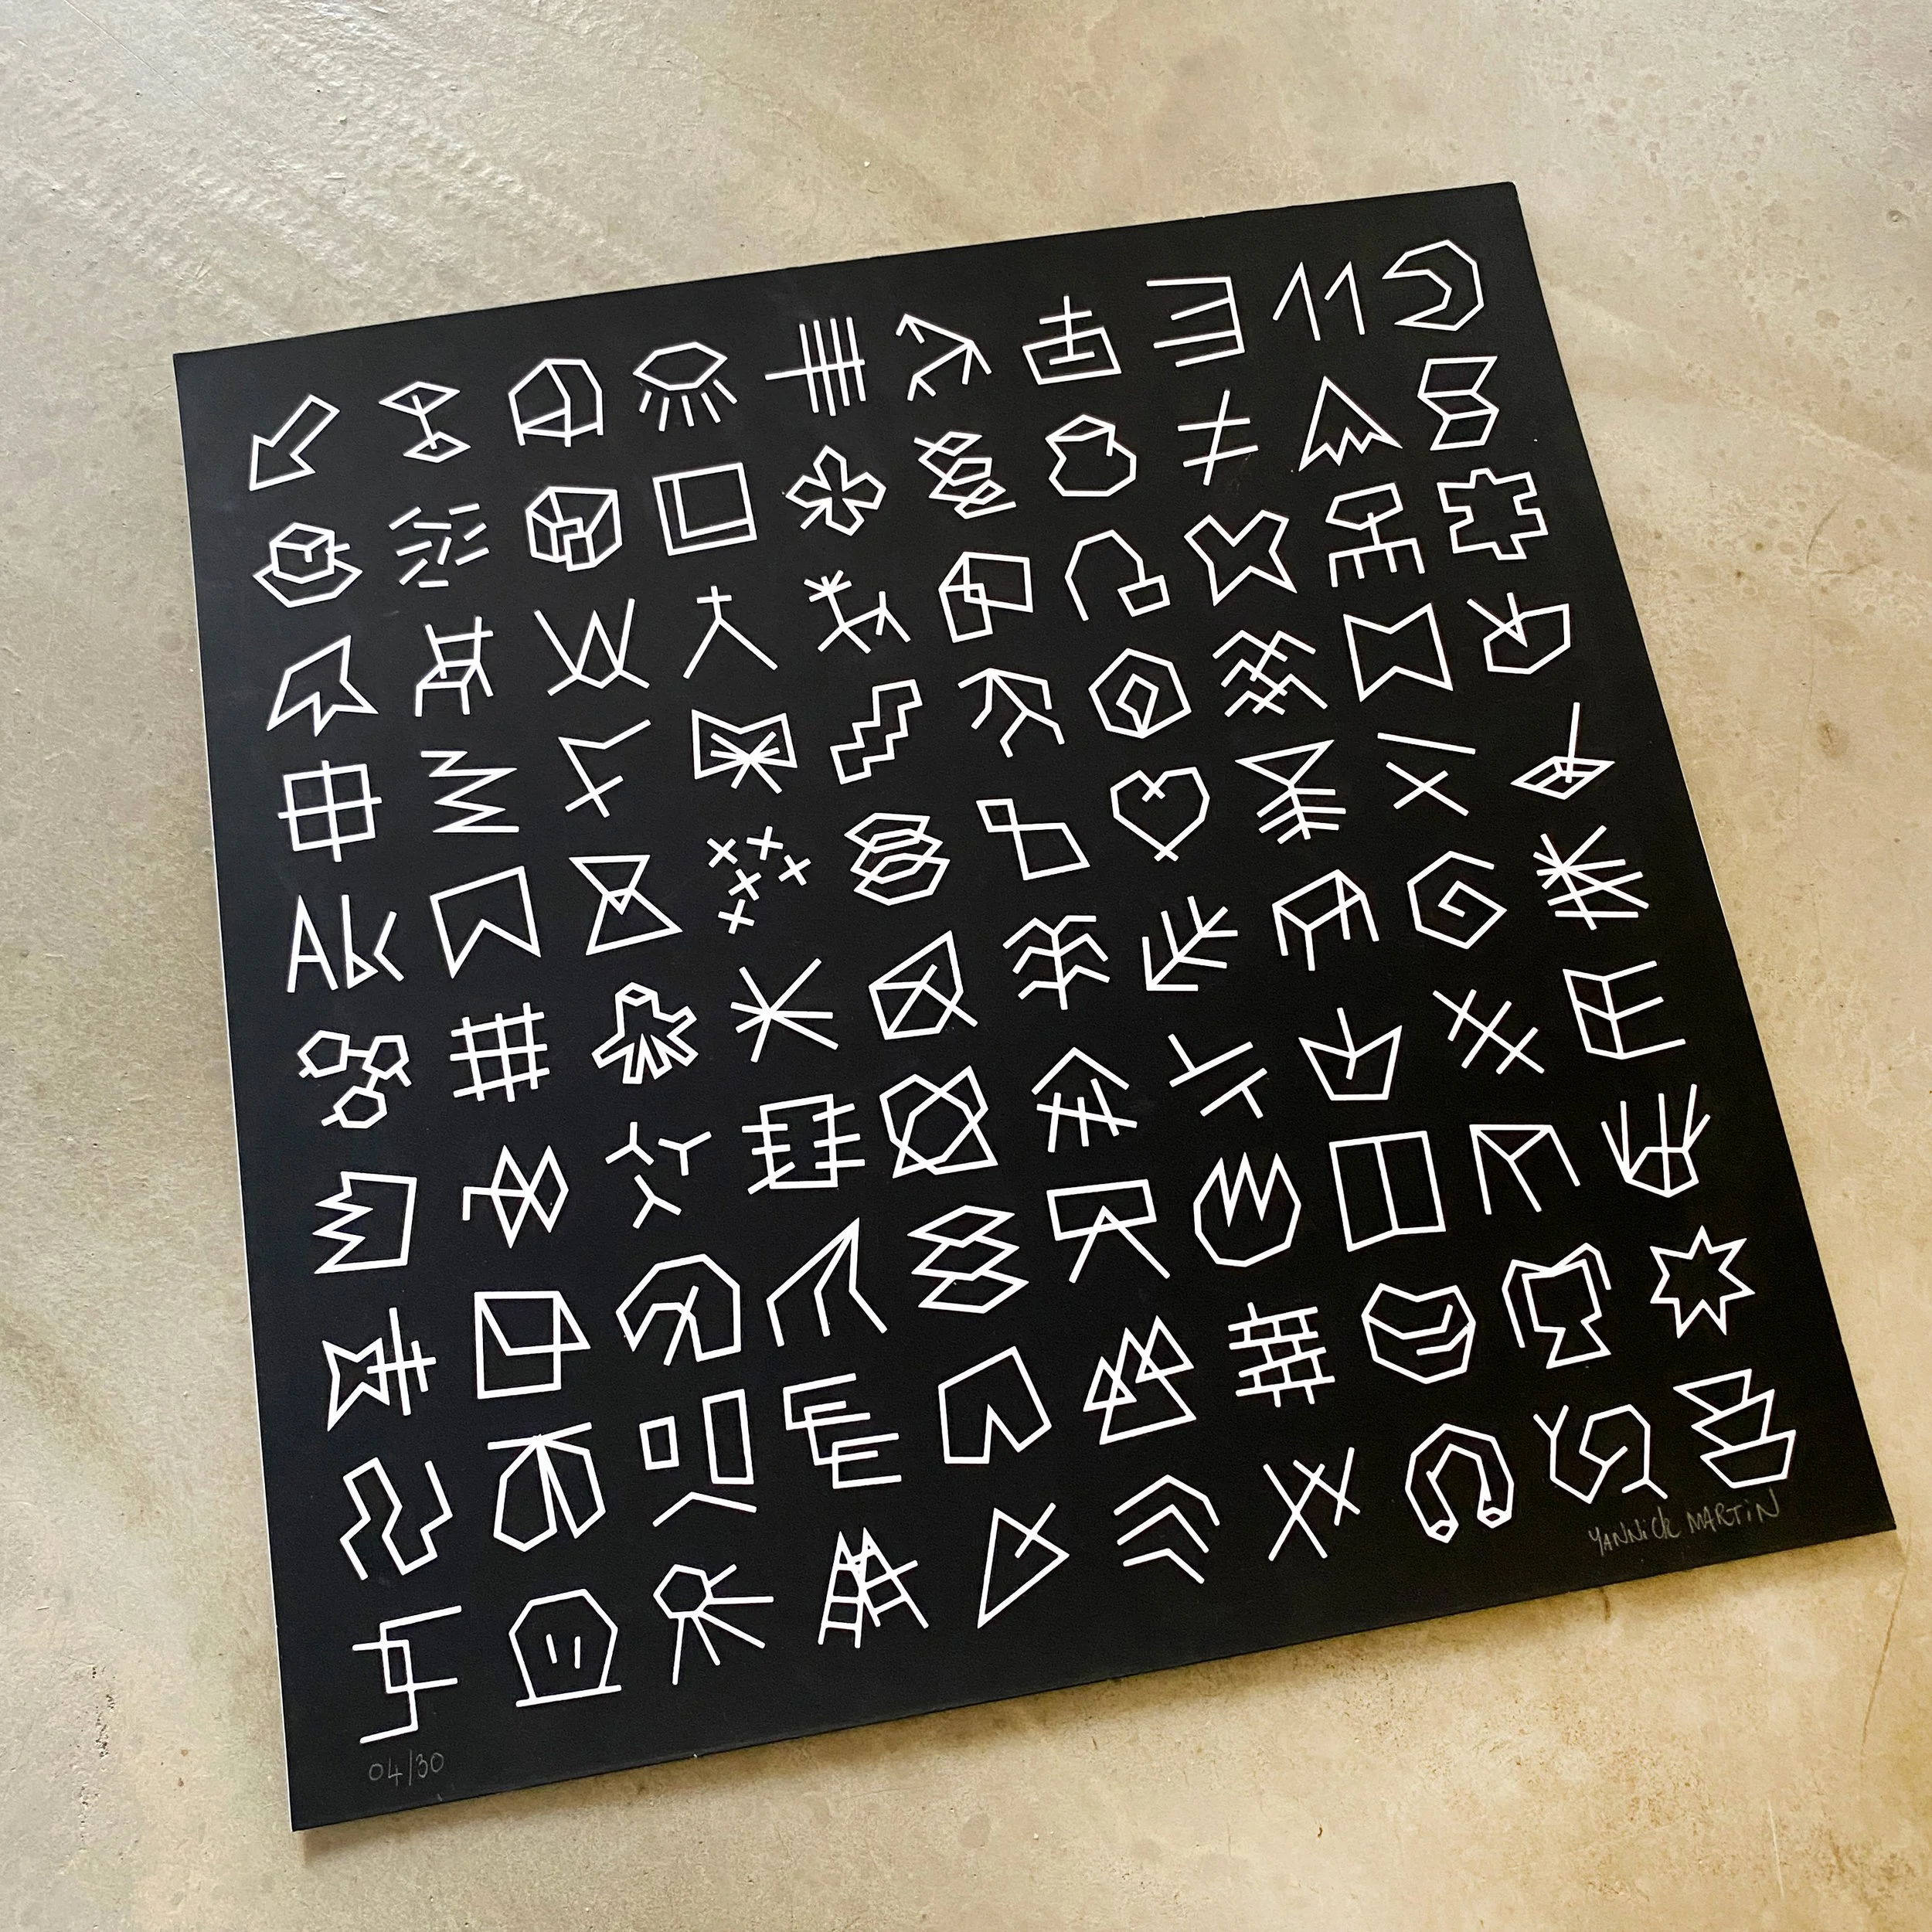 YANNiCk MARTiN
04/30